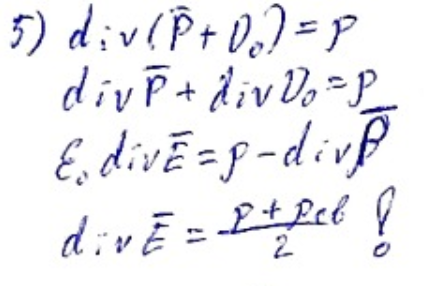 5) div(P̅+D₀)=ρ
divP̅+divD₀=ρ
ε₀divE̅=ρ-divP̅
divE̅=(ρ+ρсв)/2 !